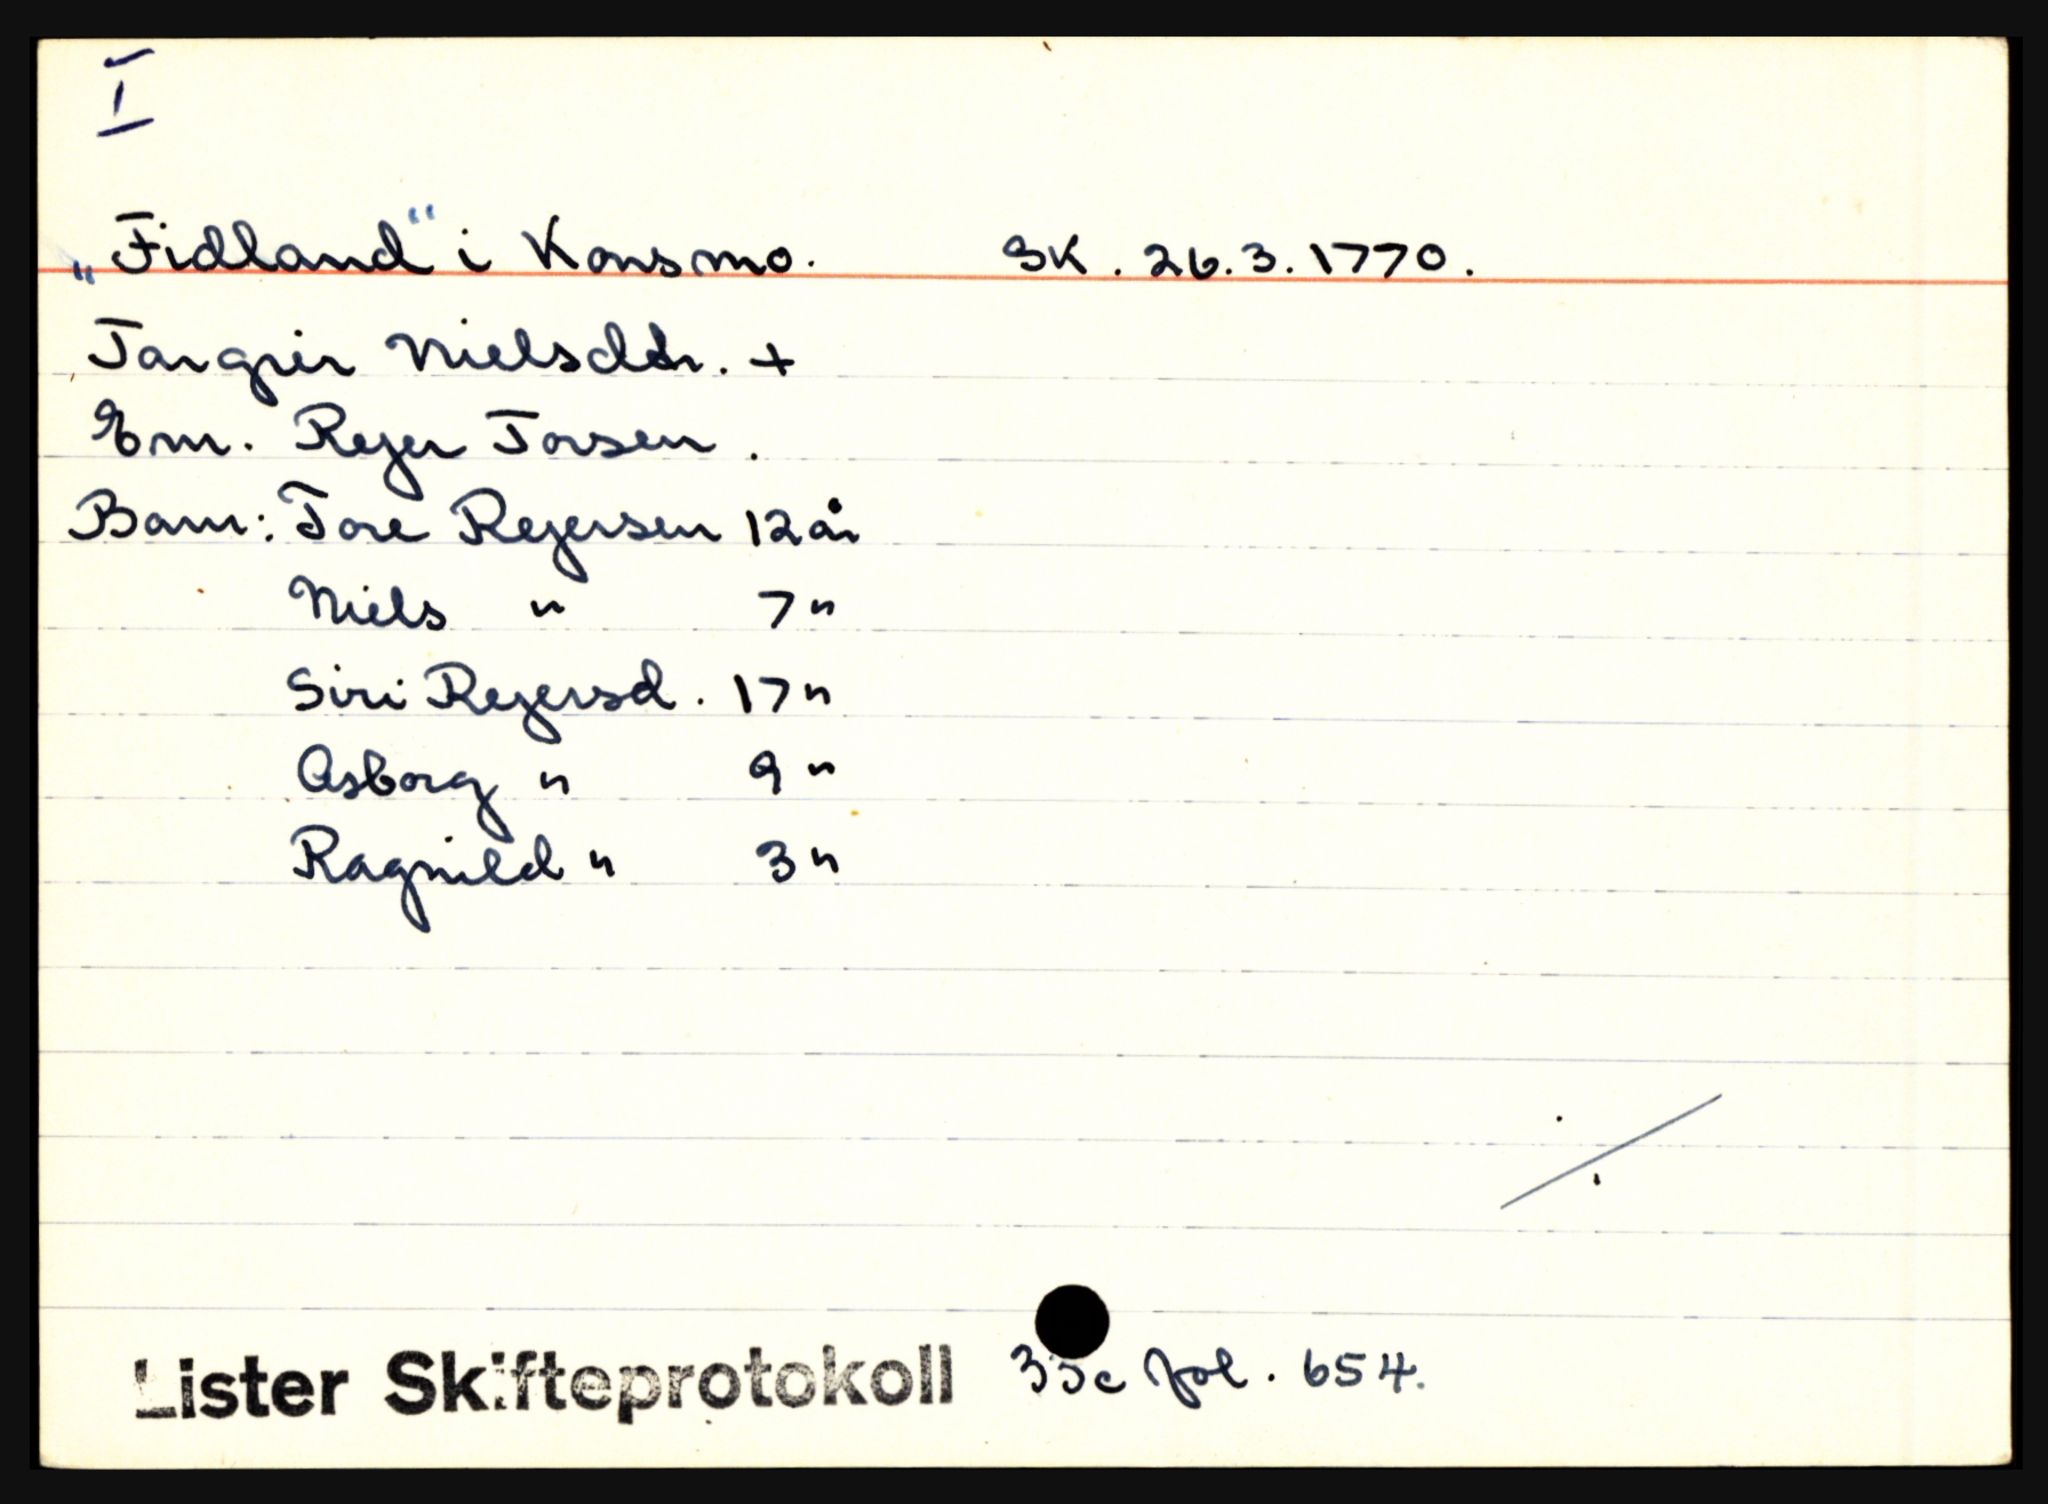 I
„Fidland“ i Konsmo. SK. 26.3.1770.
Targier Nielsdtr. +
Em. Rejer Torsen.
Barn: Tore Rejersen 12 år
Niels " 7 "
Siri Rejersd. 17 "
Asborg " 9 "
Ragnild " 3 "
Lister Skifteprotokoll fol. 654.